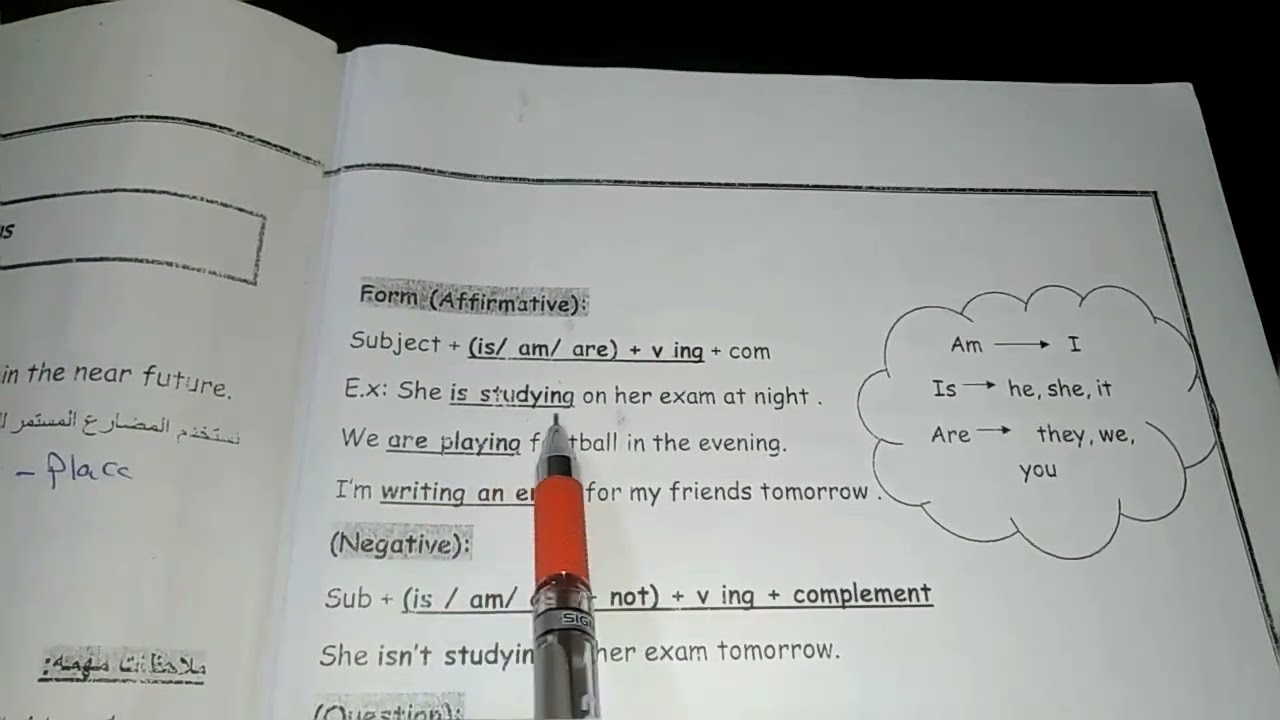 us
in the near future.
نستخدم المضارع المستمر
- Place
ملاحظات مهمه:
Form (Affirmative):
Subject + (is/ am/ are) + v ing + com
E.x: She is studying on her exam at night .
We are playing football in the evening.
I'm writing an for my friends tomorrow .
(Negative):
Sub + (is / am/ not) + v ing + complement
She isn't studying her exam tomorrow.
(Question):
Am → I
Is → he, she, it
Are → they, we,
you